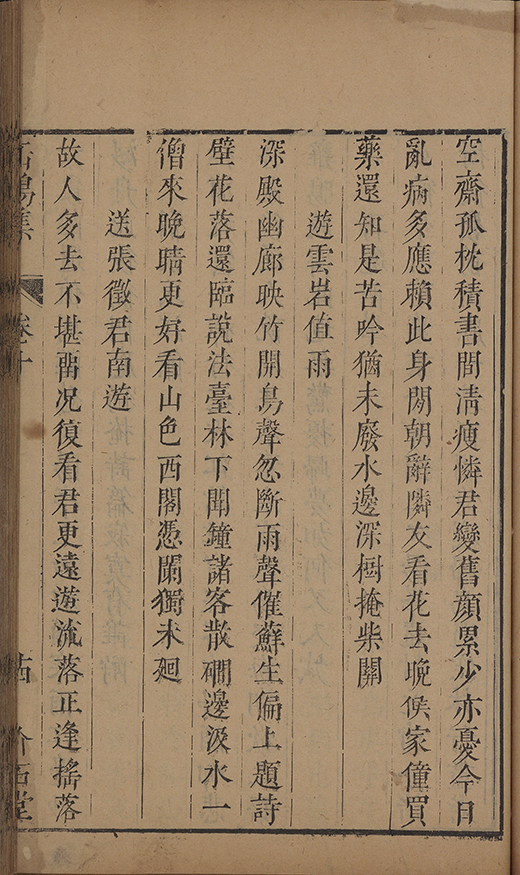 空齋孤枕積書間清瘦憐君變舊顏累少亦憂今日
亂病多應賴此身閒朝辭隣友看花去晚俟家僮買
藥還知是苦吟猶未廢水邊深樹掩柴關
遊雲岩值雨
深殿幽廊映竹開鳥聲忽斷雨聲催蘚生偏上題詩
壁花落還臨說法臺林下聞鐘諸客散磵邊汲水一
僧來晚晴更好看山色西閣憑闌獨未廻
送張徵君南遊
故人多去不堪留况復看君更遠遊流落正逢搖落
卷十